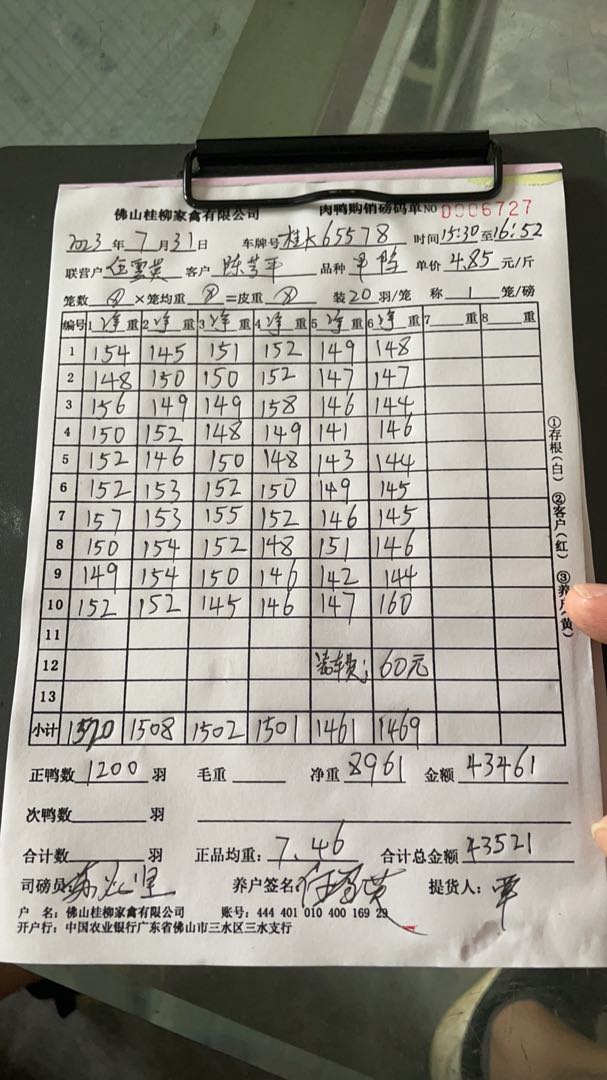 佛山桂柳家禽有限公司 肉鸭购销磅码单 NO 0006727
2023 年 7 月 31 日 车牌号 桂K65578 时间 15:30 至 16:52
联营户 伍雪英 客户 品种 单价 4.85 元/斤
笼数 ⊗ ×笼均重 ⊗ =皮重 ⊗ 装 20 羽/笼 称 1 笼/磅
编号 1 净 重 2 净 重 3 净 重 4 净 重 5 净 重 6 净 重 7 重 8 重
1 154 145 151 152 149 148
2 148 150 150 152 147 147
3 156 149 149 158 146 144
4 150 152 148 149 141 146
5 152 146 150 148 143 144
6 152 153 152 150 149 145
7 157 153 155 152 146 145
8 150 154 152 148 151 146
9 149 154 150 146 142 144
10 152 152 145 146 147 160
11
12 装车费: 60元
13
小计 1520 1508 1502 1501 1461 1469
①存根(白) ②客户(红) ③养户(黄)
正鸭数 1200 羽 毛重 净重 8961 金额 43461
次鸭数 羽
合计数 羽 正品均重: 7.46 合计总金额 43521
司磅员 养户签名: 伍雪英 提货人: 覃
户 名: 佛山桂柳家禽有限公司 账号: 444 401 010 400 169 29
开户行: 中国农业银行广东省佛山市三水区三水支行